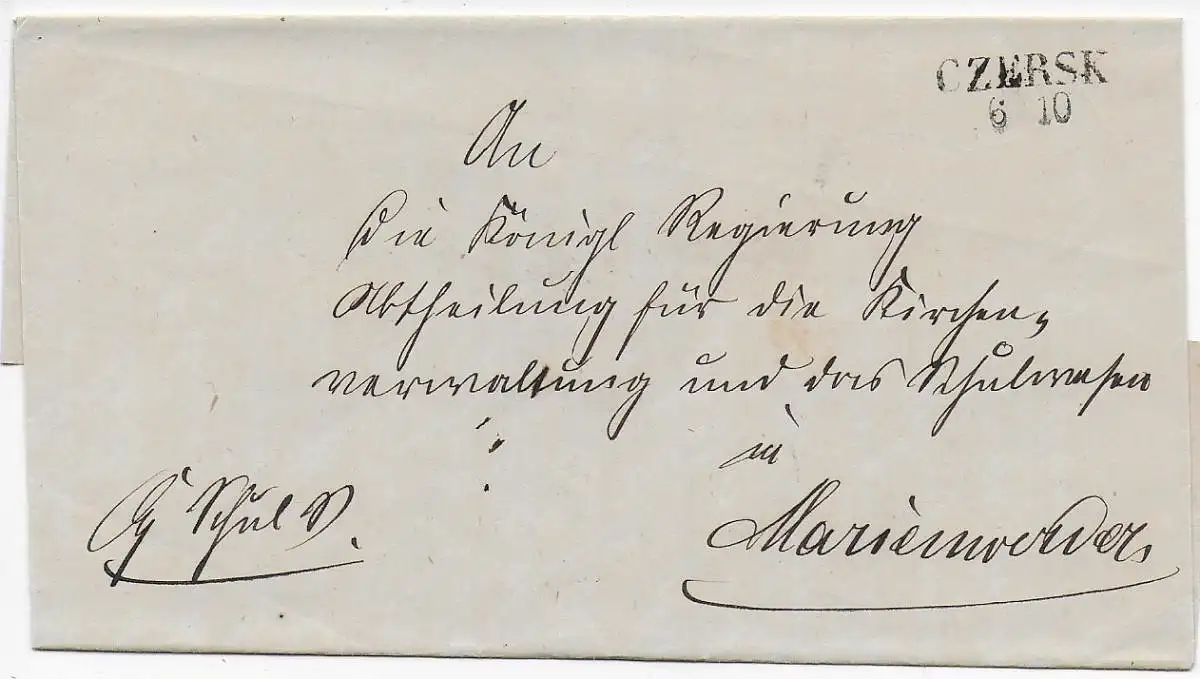 CZERSK
6 10
An
die Königl Regierung
Abtheilung für die Kirchen-
verwaltung und das Schulwesen
in
Marienwerder
Schul S.